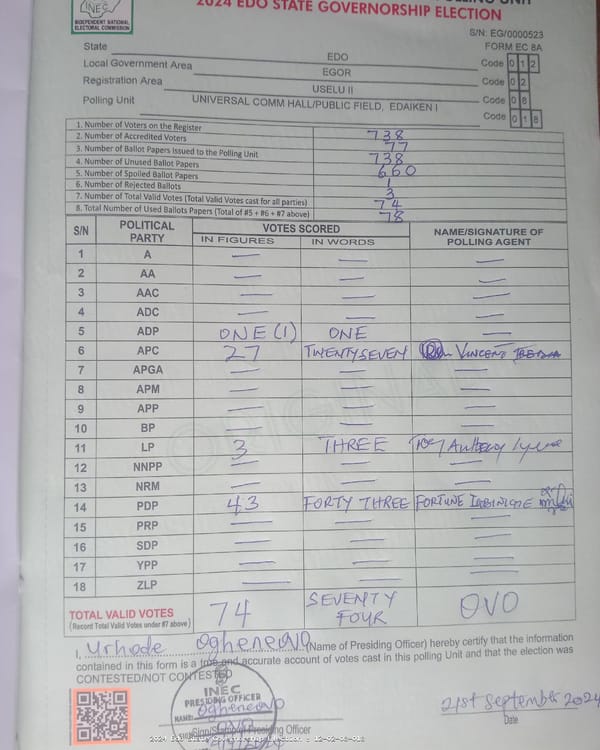 INEC
INDEPENDENT NATIONAL
ELECTORAL COMMISSION
2024 EDO STATE GOVERNORSHIP ELECTION
S/N: EG/0000523
FORM EC 8A
State EDO Code 0 1 2
Local Government Area EGOR Code 0 2
Registration Area USELU II Code 0 8
Polling Unit UNIVERSAL COMM HALL/PUBLIC FIELD, EDAIKEN I Code 0 1 8
1. Number of Voters on the Register 738
2. Number of Accredited Voters 77
3. Number of Ballot Papers Issued to the Polling Unit 738
4. Number of Unused Ballot Papers 660
5. Number of Spoiled Ballot Papers 1
6. Number of Rejected Ballots 3
7. Number of Total Valid Votes (Total Valid Votes cast for all parties) 74
8. Total Number of Used Ballots Papers (Total of #5 + #6 + #7 above) 78
S/N POLITICAL PARTY VOTES SCORED NAME/SIGNATURE OF POLLING AGENT
IN FIGURES IN WORDS
1 A — — —
2 AA — — —
3 AAC — — —
4 ADC — — —
5 ADP ONE (1) ONE —
6 APC 27 TWENTY SEVEN VINCENT
7 APGA — — —
8 APM — — —
9 APP — — —
10 BP — — —
11 LP 3 THREE
12 NNPP — — —
13 NRM — — —
14 PDP 43 FORTY THREE FORTUNE
15 PRP — — —
16 SDP — — —
17 YPP — — —
18 ZLP — — —
TOTAL VALID VOTES 74 SEVENTY FOUR OVO
(Record Total Valid Votes under #7 above)
I, Urhode Ogheneovo (Name of Presiding Officer) hereby certify that the information
contained in this form is a true and accurate account of votes cast in this polling Unit and that the election was
CONTESTED/NOT CONTESTED
INEC
PRESIDING OFFICER
NAME: Ogheneovo
Presiding Officer
21st September 2024
Date